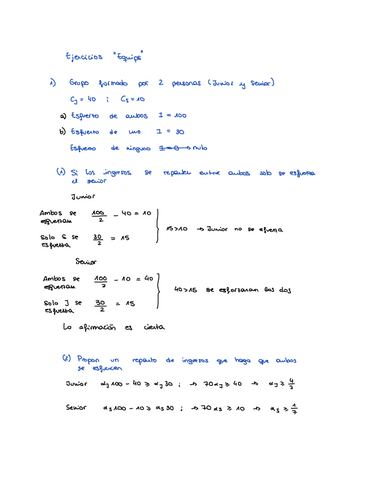 Ejercicios "Equips"
1) Grupo formado por 2 personas (Junior y Senior)
Cj = 40 ; Cs = 10
a) Esfuerzo de ambos I = 100
b) Esfuerzo de uno I = 30
Esfuerzo de ninguno I = 0 → nulo
(1) Si los ingresos se reparten entre ambos solo se esfuerza
el senior
Junior
Ambos se esfuerzan 100/2 - 40 = 10
Solo S se esfuerza 30/2 = 15
15 > 10 → Junior no se esfuerza
Senior
Ambos se esfuerzan 100/2 - 10 = 40
Solo J se esfuerza 30/2 = 15
40 > 15 se esforzaran los dos
La afirmación es cierta
(2) Propon un reparto de ingresos que haga que ambos
se esfuercen
Junior αj 100 - 40 ≥ αj 30 ; → 70 αj ≥ 40 → αj ≥ 4/7
Senior αs 100 - 10 ≥ αs 30 ; → 70 αs ≥ 10 → αs ≥ 1/7